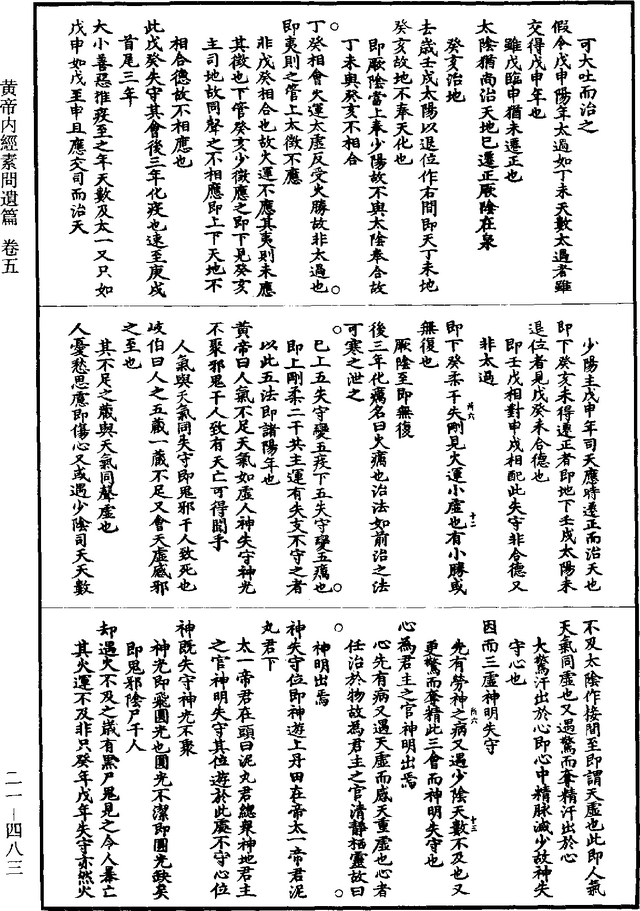 黄帝内經素問遺篇 卷五
可大吐而治之
假令戊申陽年太過如丁未天數太過者雖
交得戊申年也
雖戊臨申猶未遷正也
太陰猶尚治天地已遷正厥陰在泉
癸亥治地
去歲壬戌太陽以退位作右間即天丁未地
癸亥故地不奉天化也
即厥陰當上奉少陽故不與太陰奉合故
丁未與癸亥不相合
丁癸相會火運太虛反受火勝故非太過也
即夷則之管上太徵不應
非戊癸相合也故火運不應其夷則未應
其徵也下管癸亥少徵應之即下見癸亥
主司地故同聲之不相應即上下天地不
相合德故不相應也
此戊癸失守其會後三年化疫也速至庚戌
首尾三年
大小善惡推疫至之年天數及太一又只如
戊申如戊至申且應交司而治天
少陽主戊申年司天應時遷正而治天也
即下癸亥未得遷正者即地下壬戌太陽未
退位者見戊癸未合德也
即壬戊相對申戌相配此失守非合德又
非太過
即下癸柔干失剛見火運小虛也有小勝或
無復也
厥陰至即無復
後三年化癘名曰火癘也治法如前治之法
可寒之泄之
已上五失守變五疫下五失守變五癘也
即上剛柔二干共主運有失支不守之者
以此五法即諸陽年也
黄帝曰人氣不足天氣如虛人神失守神光
不聚邪鬼干人致有夭亡可得聞乎
人氣與天氣同失守即鬼邪干人致死也
岐伯曰人之五藏一藏不足又會天虛感邪
之至也
其不足之藏與天氣同聲虛也
人憂愁思慮即傷心又或遇少陰司天天數
不及太陰作接間至即謂天虛也此即人氣
天氣同虛也又遇驚而奪精汗出於心
大驚汗出於心即心中精脉減少故神失
守心也
因而三虛神明失守
先有勞神之病又遇少陰天數不及也又
更驚而奪精此三會而神明失守也
心為君主之官神明出焉
心先有病又遇天虛而感天重虛也心者
任治於物故為君主之官清靜栖靈故曰
神明出焉
神失守位即神遊上丹田在帝太一帝君泥
丸君下
太一帝君在頭曰泥丸君總衆神地君主
之官神明失守其位遊於此處不守心位
神既失守神光不聚
神光即飛圓光也圓光不潔即圓光缺矣
即鬼邪陰尸干人
却遇火不及之歲有黑尸鬼見之令人暴亡
其火運不及非只癸年戊年失守亦然火
二一—四八三